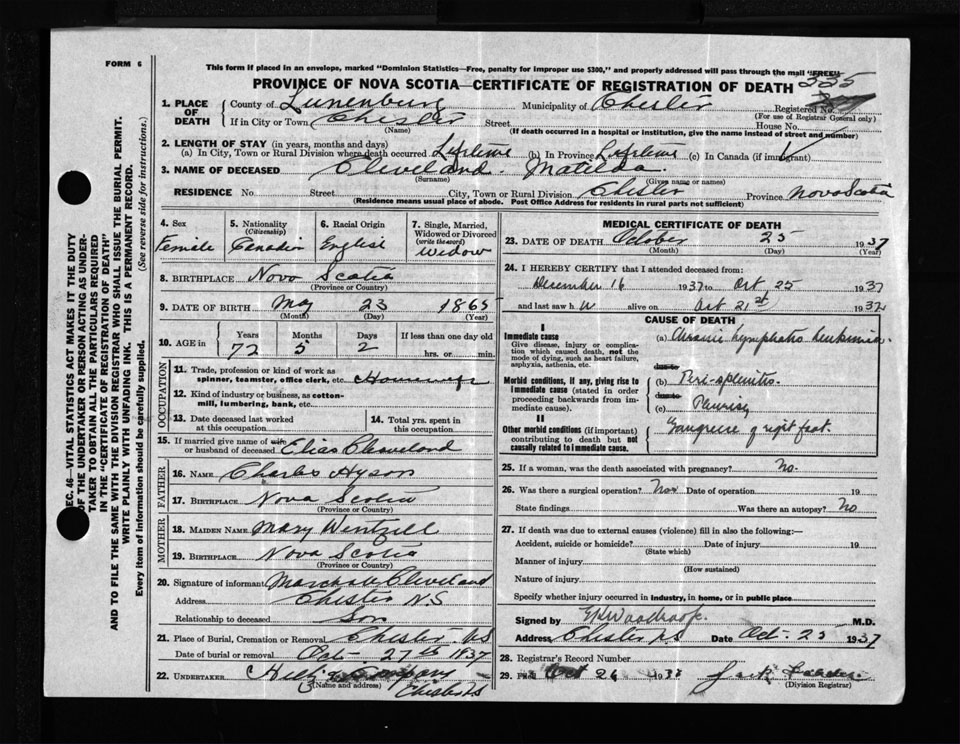 FORM 6
This form if placed in an envelope, marked "Dominion Statistics—Free, penalty for improper use $300," and properly addressed will pass through the mail "FREE"
PROVINCE OF NOVA SCOTIA—CERTIFICATE OF REGISTRATION OF DEATH 335
1. PLACE OF DEATH County of Lunenburg Municipality of Chester Registered No.
(For use of Registrar General only)
If in City or Town Chester Street House No.
(Name) (If death occurred in a hospital or institution, give the name instead of street and number)
2. LENGTH OF STAY (in years, months and days)
(a) In City, Town or Rural Division where death occurred Lifetime (b) In Province Lifetime (c) In Canada (if immigrant)
3. NAME OF DECEASED Cleveland. Matilda.
(Surname) (Given name or names)
RESIDENCE No Street City, Town or Rural Division Chester Province Nova Scotia
(Residence means usual place of abode. Post Office Address for residents in rural parts not sufficient)
4. Sex Female
5. Nationality (Citizenship) Canadin
6. Racial Origin English
7. Single, Married, Widowed or Divorced (write the word) Widow
8. BIRTHPLACE Nova Scotia
(Province or Country)
9. DATE OF BIRTH May 23 1865
(Month) (Day) (Year)
10. AGE in Years Months Days If less than one day old
72 5 2 hrs. or min.
OCCUPATION
11. Trade, profession or kind of work as spinner, teamster, office clerk, etc.
12. Kind of industry or business, as cotton-mill, lumbering, bank, etc.
13. Date deceased last worked at this occupation
14. Total yrs. spent in this occupation
15. If married give name of wife or husband of deceased Elias Cleveland
FATHER
16. NAME Charles Hyson
17. BIRTHPLACE Nova Scotia
(Province or Country)
MOTHER
18. MAIDEN NAME Mary Wentzell
19. BIRTHPLACE Nova Scotia
(Province or Country)
20. Signature of informant Cleveland
Address Chester N.S
Relationship to deceased Son
21. Place of Burial, Cremation or Removal Chester NS
Date of burial or removal Oct- 27th 1937
22. UNDERTAKER
(Name and address) Chester NS
MEDICAL CERTIFICATE OF DEATH
23. DATE OF DEATH October 25 1937
(Month) (Day) (Year)
24. I HEREBY CERTIFY that I attended deceased from:
December 16 1937 to Oct 25 1937
and last saw h alive on Oct 21st 1937
CAUSE OF DEATH
I
Immediate cause
Give disease, injury or complication which caused death, not the mode of dying, such as heart failure, asphyxia, asthenia, etc.
(a) Chronic Lymphatic Leukemia.
due to
Morbid conditions, if any, giving rise to immediate cause (stated in order proceeding backwards from immediate cause).
(b) Peri-splenitis.
due to
(c) Pleurisy
II
Other morbid conditions (if important) contributing to death but not causally related to immediate cause.
Gangrene of right foot.
25. If a woman, was the death associated with pregnancy? No.
26. Was there a surgical operation? Date of operation 19
State findings Was there an autopsy? No
27. If death was due to external causes (violence) fill in also the following:—
Accident, suicide or homicide? Date of injury 19
(State which)
Manner of injury
(How sustained)
Nature of injury
Specify whether injury occurred in industry, in home, or in public place
Signed by M.D.
Address Chester N.S Date Oct- 25 1937
28. Registrar's Record Number
29. Filed Oct 26 1937
(Division Registrar)
SEC. 46—VITAL STATISTICS ACT MAKES IT THE DUTY
OF THE UNDERTAKER OR PERSON ACTING AS UNDER-
TAKER TO OBTAIN ALL THE PARTICULARS REQUIRED
IN THE "CERTIFICATE OF REGISTRATION OF DEATH"
AND TO FILE THE SAME WITH THE DIVISION REGISTRAR WHO SHALL ISSUE THE BURIAL PERMIT.
WRITE PLAINLY WITH UNFADING INK. THIS IS A PERMANENT RECORD.
Every item of information should be carefully supplied. (See reverse side for instructions.)